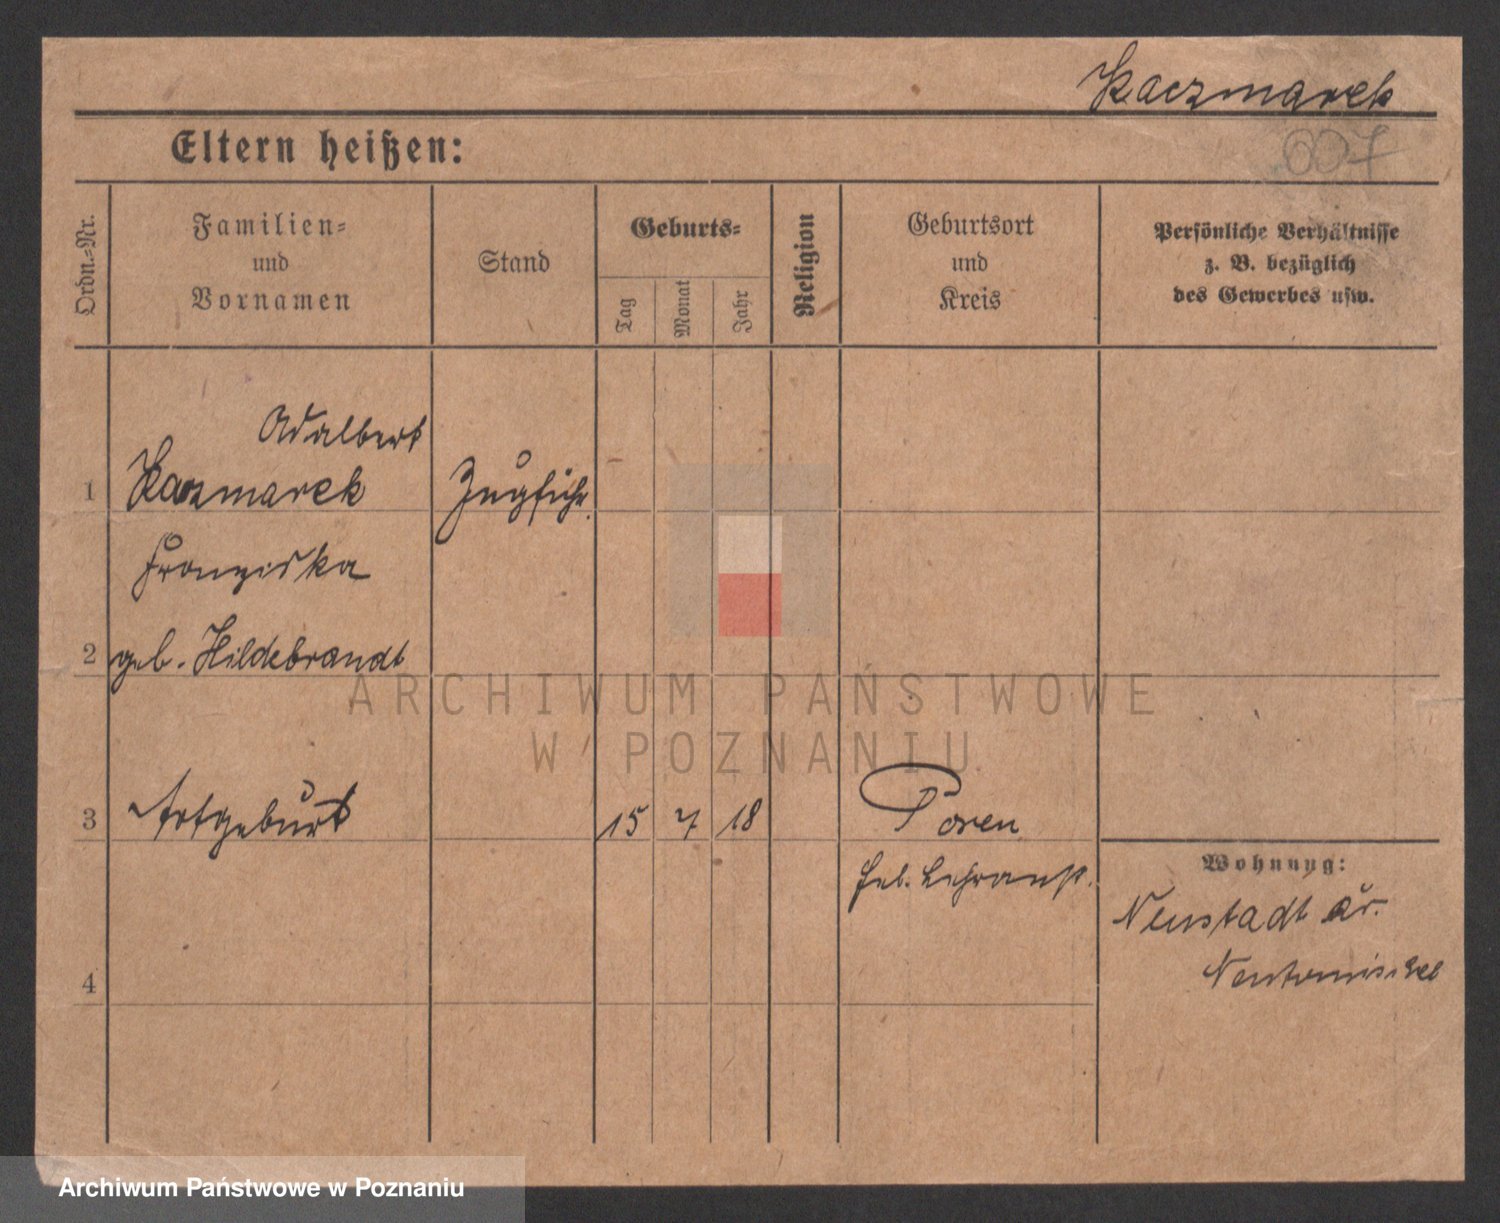 Kaczmarek
Eltern heißen:
607
Ordn.-Nr.
Familien-
und
Vornamen
Stand
Geburts-
Tag
Monat
Jahr
Religion
Geburtsort
und
Kreis
Persönliche Verhältnisse
z. B. bezüglich
des Gewerbes usw.
Adalbert
1 Kaczmarek Zugführ.
Franziska
2 geb. Hildebrandt
ARCHIWUM PAŃSTWOWE
W POZNANIU
3 Totgeburt 15 7 18 Posen
Heb. Lehranst.
Wohnung:
Neustadt Kr.
Neutomischel
4
Archiwum Państwowe w Poznaniu